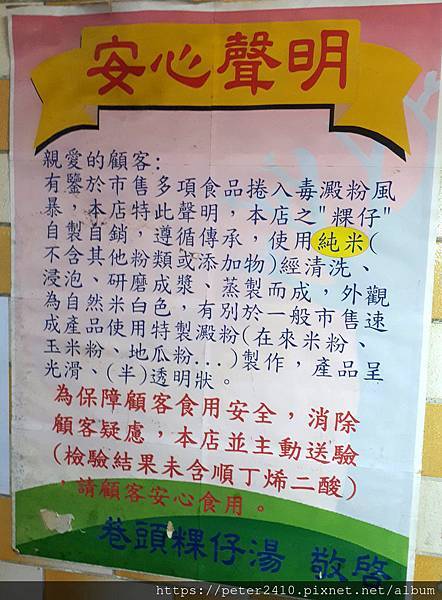 安心聲明
親愛的顧客:
有鑒於市售多項食品捲入毒澱粉風
暴，本店特此聲明，本店之"粿仔"
自製自銷，遵循傳承，使用純米(
不含其他粉類或添加物)經清洗、
浸泡、研磨成漿、蒸製而成，外觀
為自然米白色，有別於一般市售速
成產品使用特製澱粉(在來米粉、
玉米粉、地瓜粉...)製作，產品呈
光滑、(半)透明狀。
為保障顧客食用安全，消除
顧客疑慮，本店並主動送驗
(檢驗結果未含順丁烯二酸)
，請顧客安心食用。
巷頭粿仔湯 敬啓
https://peter2410.pixnet.net/album